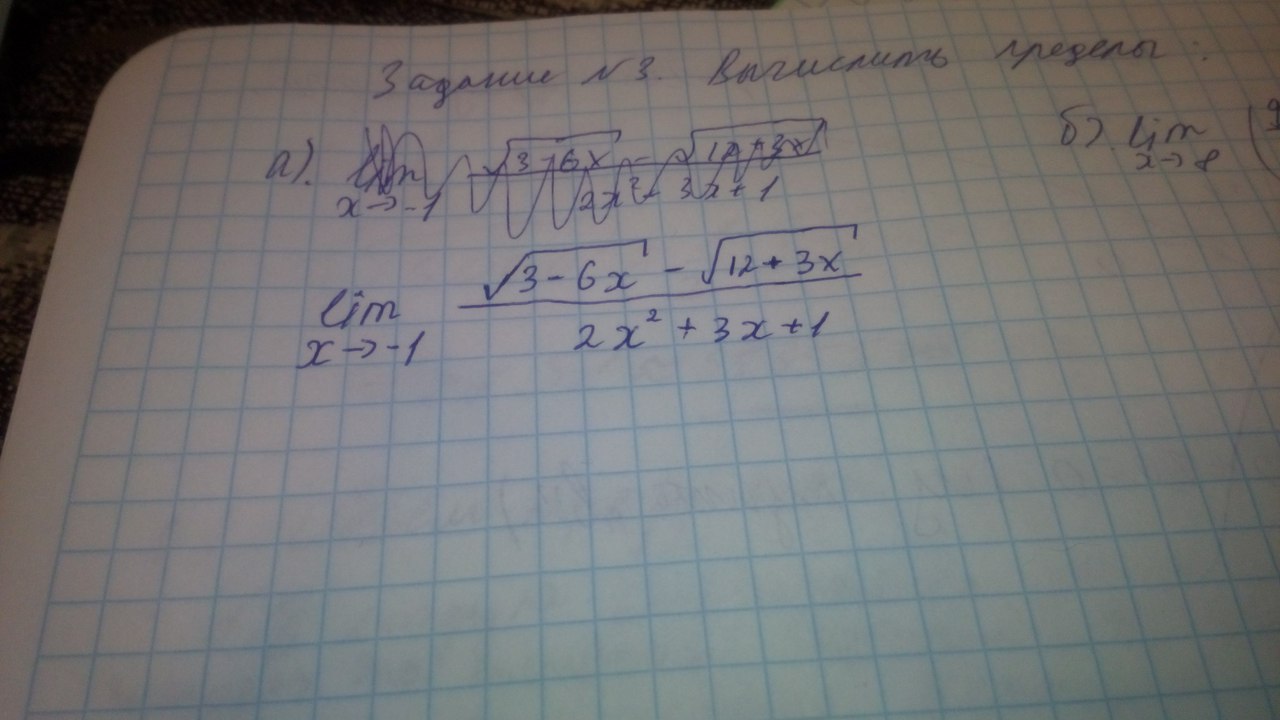 Задание №3. Вычислить пределы:
а). lim x→-1 √(3-6x) - √(12+3x) / 2x² 3x+1
б). lim x→8 (
lim x→-1 √(3-6x) - √(12+3x) / 2x² + 3x + 1